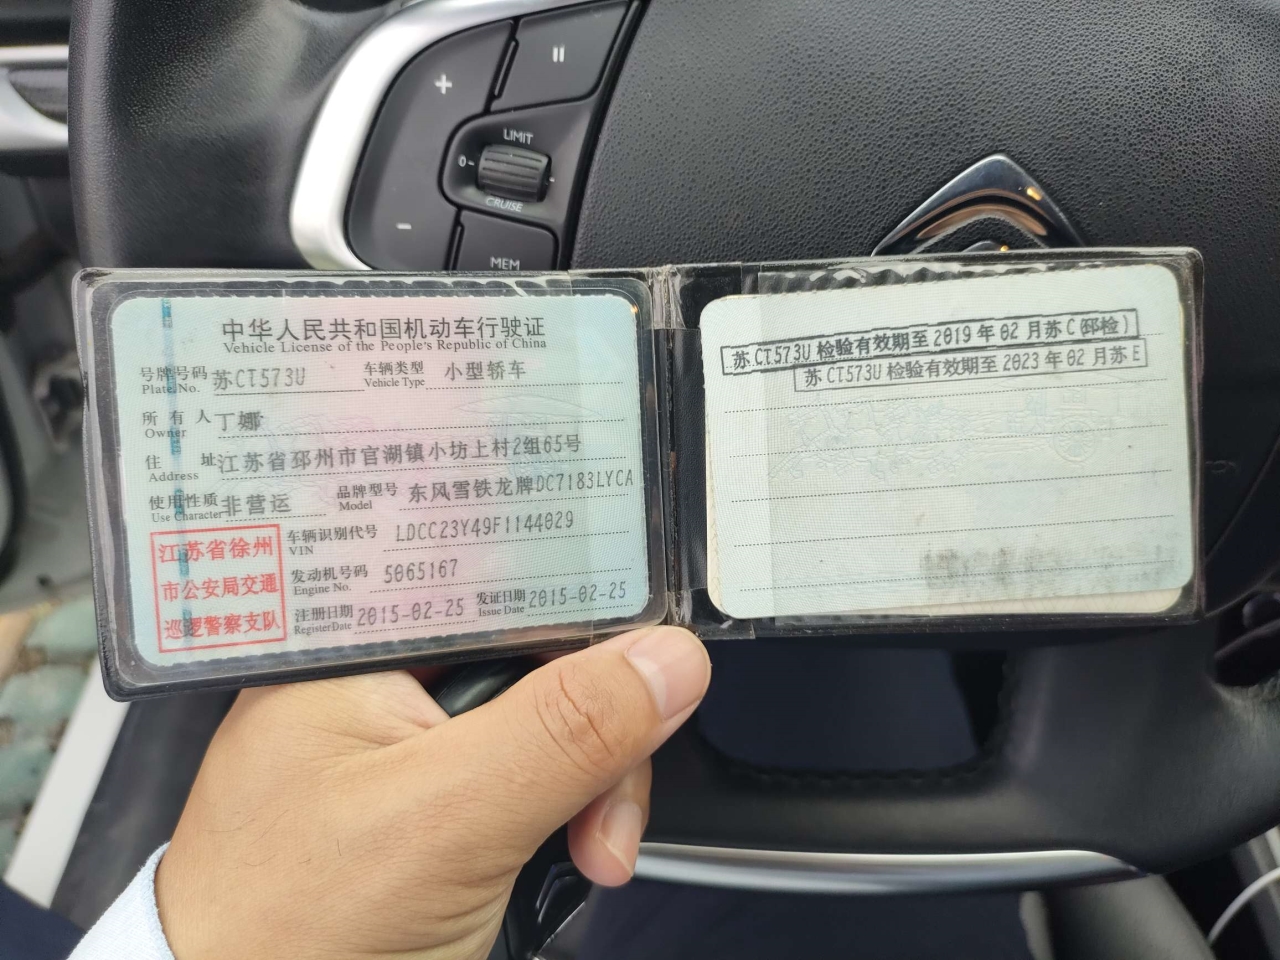 +
LIMIT
0-
CRUISE
-
MEM
中华人民共和国机动车行驶证
Vehicle License of the People's Republic of China
号牌号码 苏CT573U 车辆类型 小型轿车
Plate No. Vehicle Type
所有人 丁娜
Owner
住址 江苏省邳州市官湖镇小坊上村2组65号
Address
使用性质 非营运 品牌型号 东风雪铁龙牌DC7183LYCA
Use Character Model
江苏省徐州
市公安局交通
巡逻警察支队
车辆识别代号 LDCC23Y49F1144029
VIN
发动机号码 5065167
Engine No.
注册日期 2015-02-25 发证日期 2015-02-25
Register Date Issue Date
苏CT573U检验有效期至2019年02月苏C(邳检)
苏CT573U检验有效期至2023年02月苏E